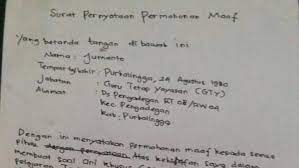 Surat Pernyataan Permohonan Maaf
Yang bertanda tangan di bawah ini
Nama : Jumanto
Tempat, tgl lahir : Purbalingga, 24 Agustus 1980
Jabatan : Guru Tetap Yayasan (GTY)
Alamat : Ds Pengadegan RT 08/RW 04
Kec. Pengadegan
Kab. Purbalingga
Dengan ini menyatakan permohonan maaf kepada semua
pihak Atas Saya dalam
membuat Soal
pelajaran